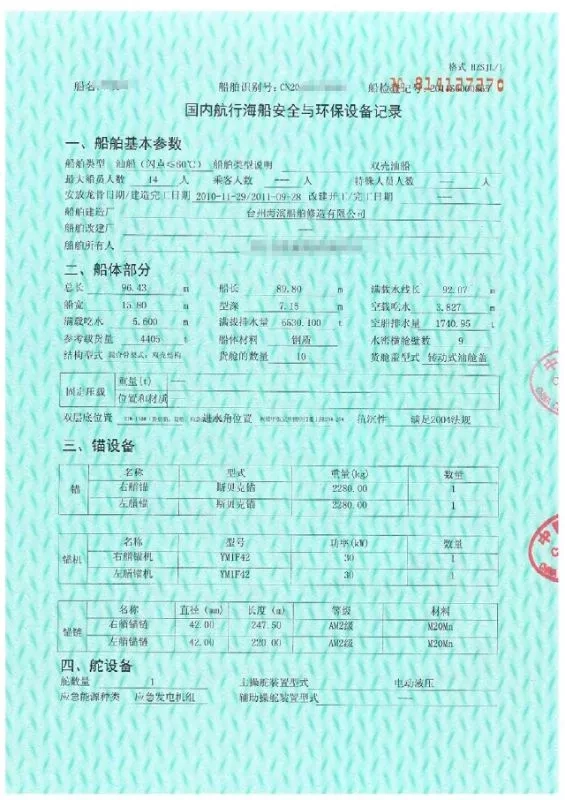 格式 HZSJL/1
船名 船舶识别号:CN20 船检登记号:
国内航行海船安全与环保设备记录
一、船舶基本参数
船舶类型 油船(闪点≤60℃) 船舶类型说明 双壳油船
最大船员人数 14 人 乘客人数 --- 人 特殊人员人数 --- 人
安放龙骨日期/建造完工日期 2010-11-29/2011-09-28 改建开工/完工日期 ---
船舶建造厂 台州海滨船舶修造有限公司
船舶改建厂 ---
船舶所有人
二、船体部分
总长 96.43 m 船长 89.80 m 满载水线长 92.07 m
船宽 15.80 m 型深 7.15 m 空载吃水 3.827 m
满载吃水 5.600 m 满载排水量 6530.100 t 空船排水量 1740.95 t
参考载货量 4405 t 船体材料 钢质 水密横舱壁数 9
结构型式 货舱的数量 10 货舱盖型式 转动式油舱盖
固定压载 重量(t) ---
位置和材质 ---
双层底位置 进水角位置 抗沉性 满足2004法规
三、锚设备
锚 名称 型式 重量(kg) 数量
右艏锚 斯贝克锚 2280.00 1
左艏锚 斯贝克锚 2280.00 1
锚机 名称 型号 功率(kW) 数量
右艏锚机 YM1F42 30 1
左艏锚机 YM1F42 30 1
锚链 名称 直径(mm) 长度(m) 等级 材料
右艏锚链 42.00 247.50 AM2级 M20Mn
左艏锚链 42.00 220.00 AM2级 M20Mn
四、舵设备
舵数量 1 主操舵装置型式 电动液压
应急能源种类 应急发电机组 辅助操舵装置型式 ---